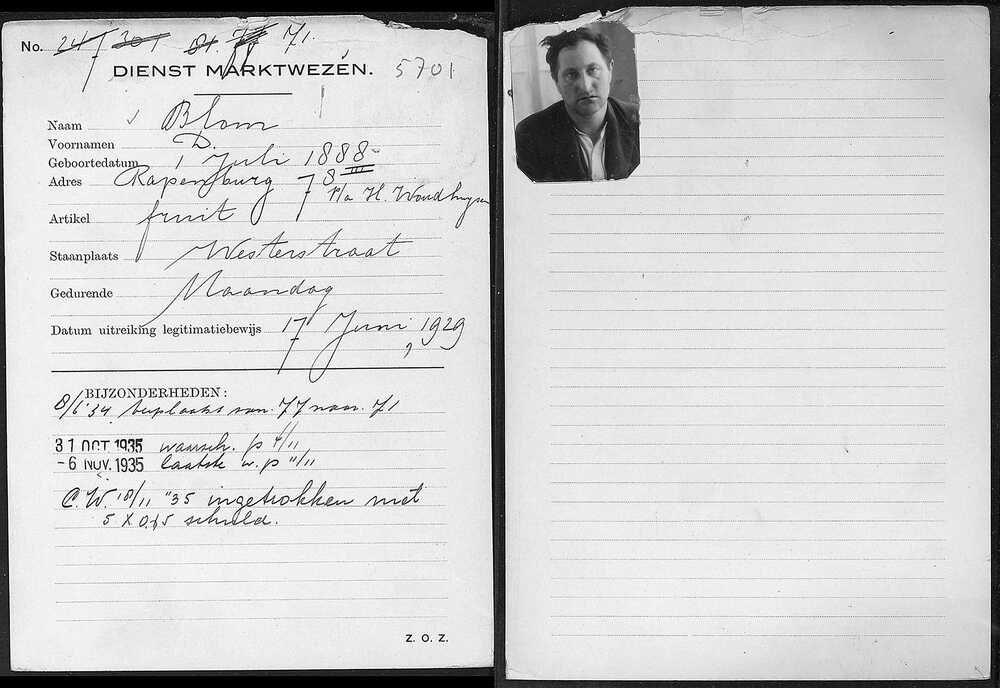 No. 247 301 81. 77 71.
DIENST MARKTWEZEN. 5701
Naam Blom
Voornamen D.
Geboortedatum 1 Juli 1888
Adres Rapenburg 78 III
p/a H. Woudhuysen
Artikel fruit
Staanplaats Westerstraat
Gedurende Maandag
Datum uitreiking legitimatiebewijs 17 Juni, 1929
BIJZONDERHEDEN:
8/6'34 verplaatst van 77 naar 71
31 OCT 1935 waarsch. p 4/11
-6 NOV. 1935 laatste w. p 11/11
C.W. 18/11 "35 ingetrokken met
5 X 0,15 schuld.
Z. O. Z.